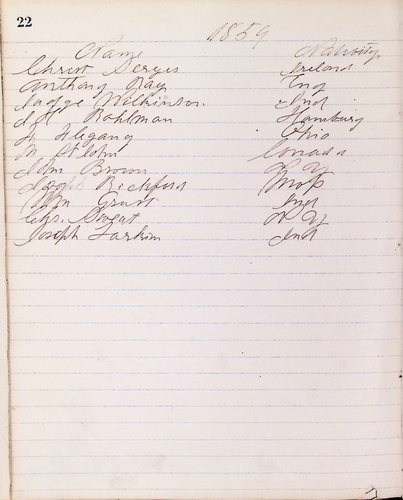 22
1859
Name Nativity
Christ Serges Ireland
Anthony Ray Eng
Madge Wilkinson Ind
J H Bohlman Hamburg
Ohio
M St John Canada
John Brown N Y
Joseph Bickford Mass
Wm Grant Ind
Chs. Sweat N Y
Joseph Larkin Ind